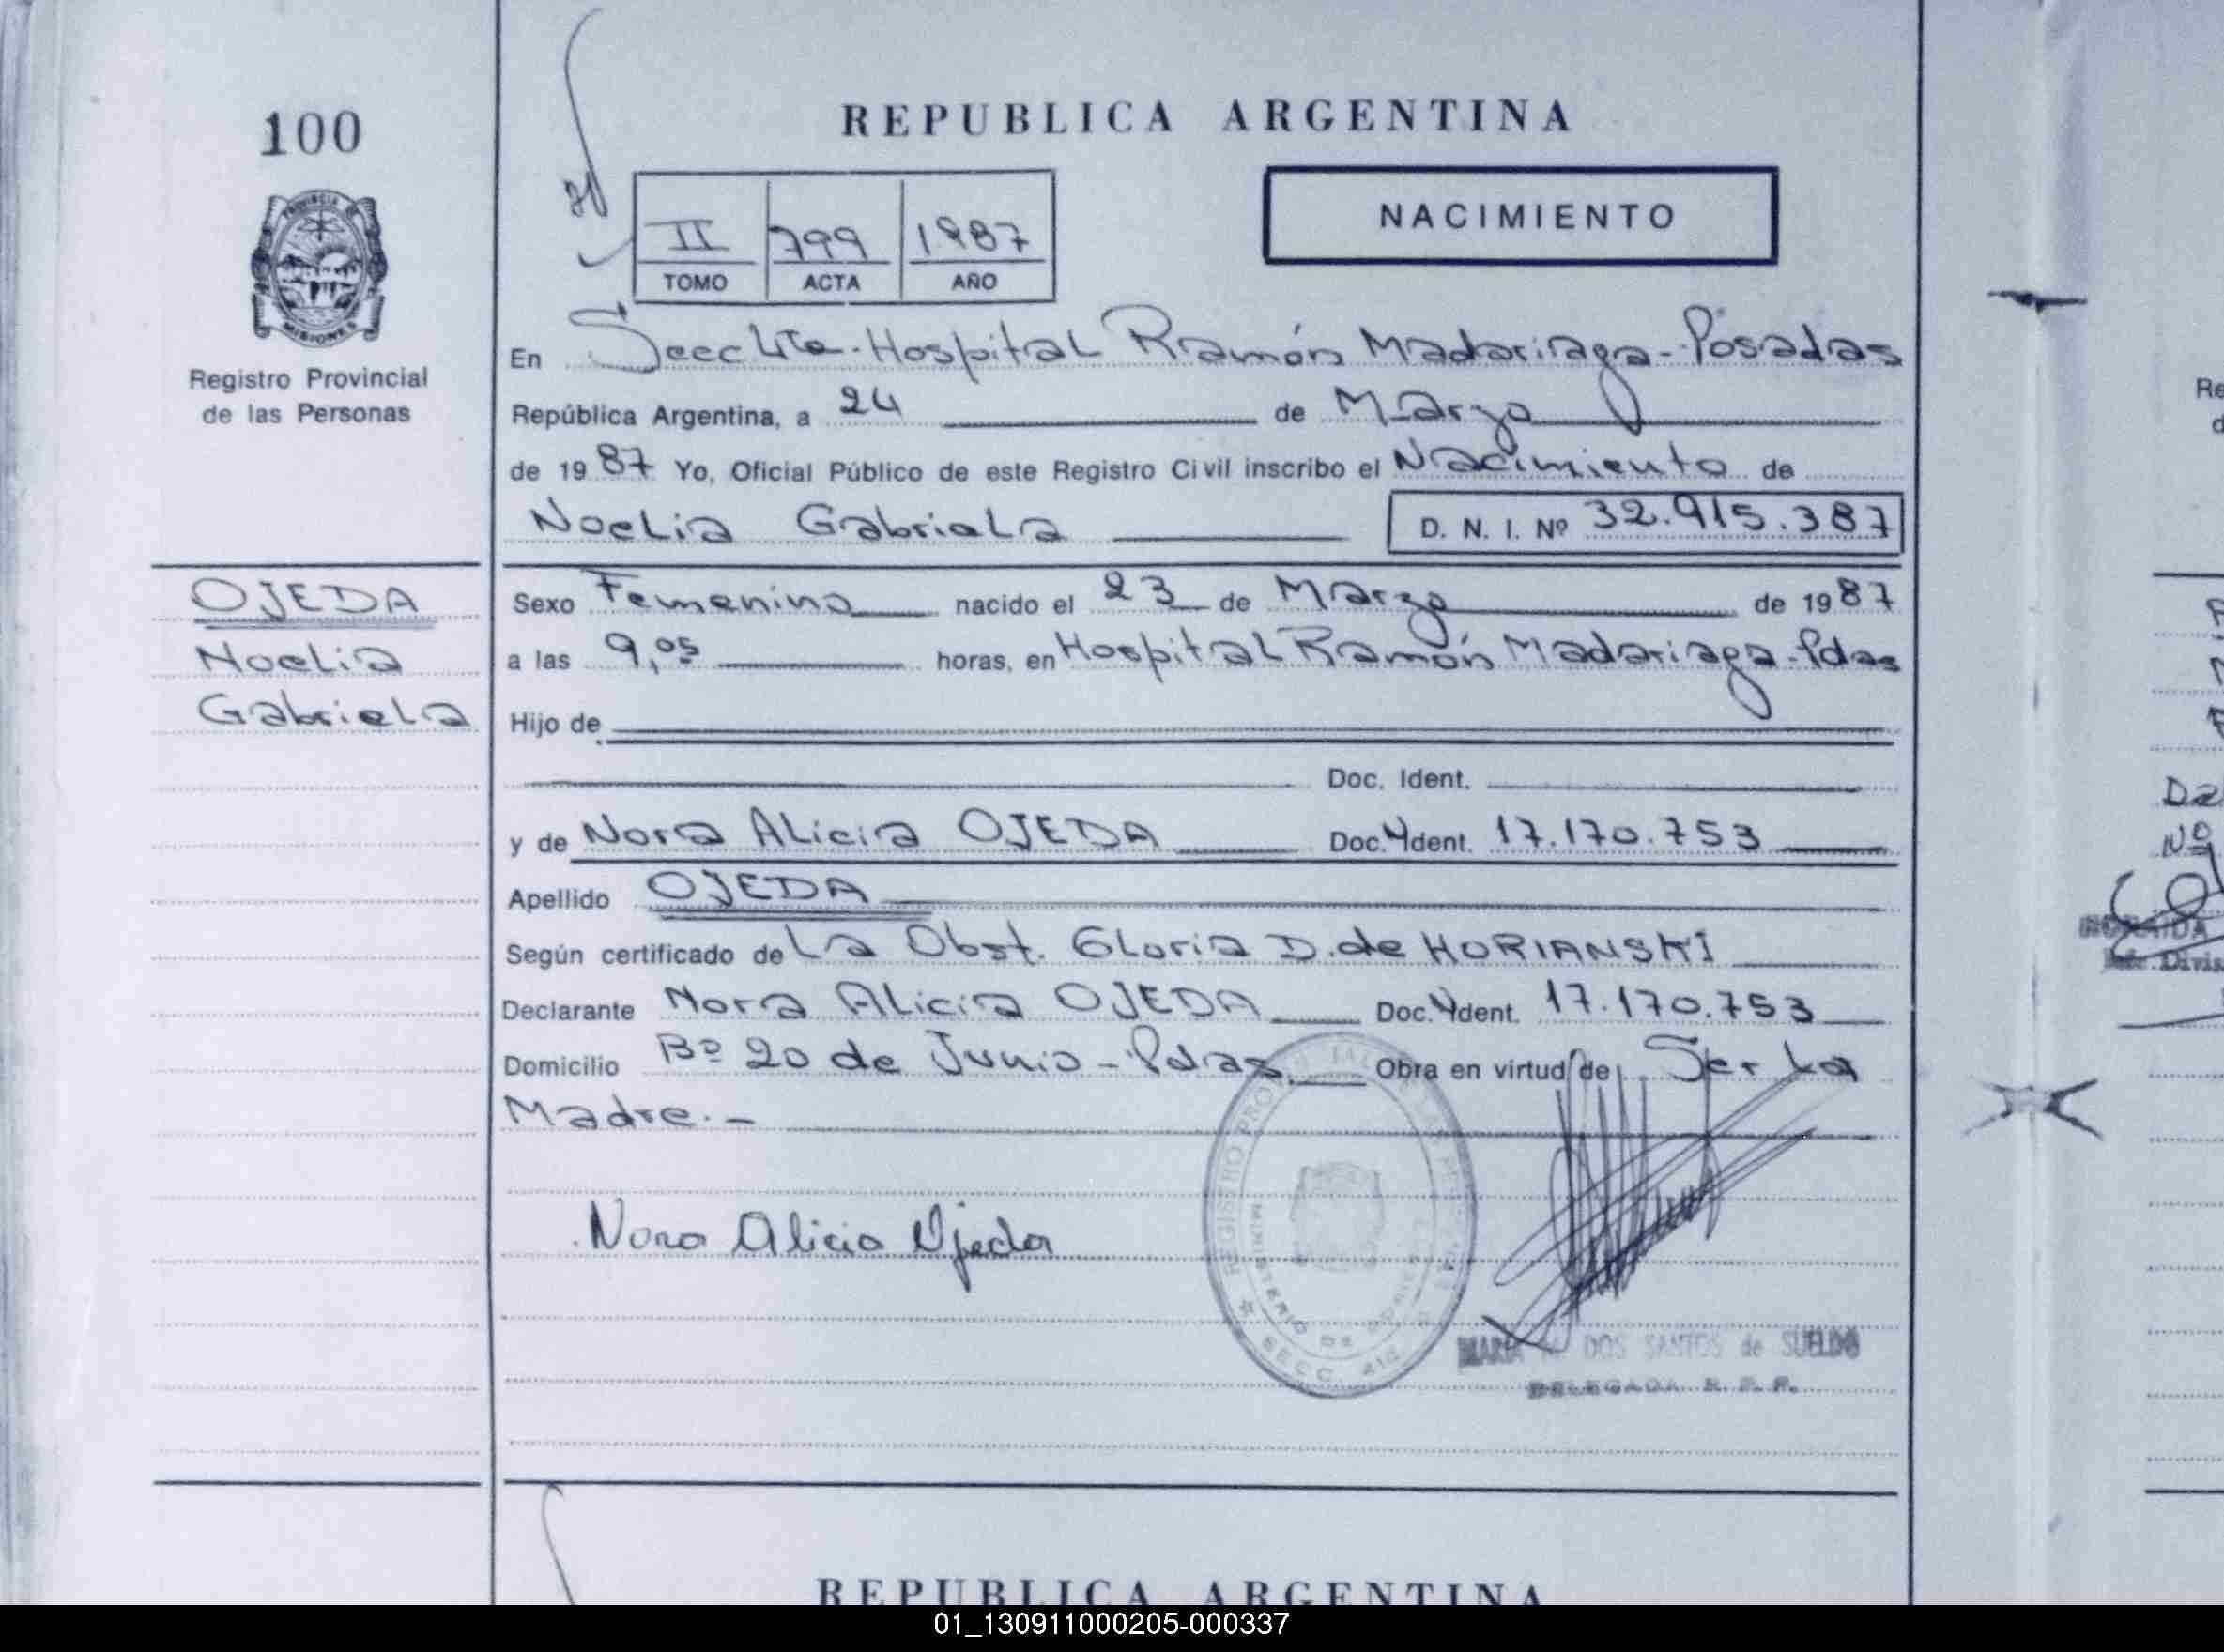 100
PROVINCIA DE
MISIONES
Registro Provincial
de las Personas
OJEDA
Noelia
Gabriela
REPUBLICA ARGENTINA
II 799 1987
TOMO ACTA AÑO
NACIMIENTO
En Secc 4ta-Hospital Ramón Madariaga-Posadas
República Argentina, a 24 de Marzo
de 1987 Yo, Oficial Público de este Registro Civil inscribo el Nacimiento de
Noelia Gabriela D. N. I. Nº 32.915.387
Sexo Femenino nacido el 23 de Marzo de 1987
a las 9,05 horas, en Hospital Ramón Madariaga-Pdas
Hijo de
Doc. Ident.
y de Nora Alicia OJEDA Doc. Ident. 17.170.753
Apellido OJEDA
Según certificado de La Obst. Gloria D. de HORIANSKI
Declarante Nora Alicia OJEDA Doc. Ident. 17.170.753
Domicilio Bº 20 de Junio - Pdas. Obra en virtud de Ser La
Madre.-
Nora Alicia Ojeda
REGISTRO
MINISTERIO DE
SECC. 4ta
MARIA DOS SANTOS de SUELDO
DELEGADA R. P. P.
REPUBLICA ARGENTINA
Re
Da
Nº
Divis
01_130911000205-000337